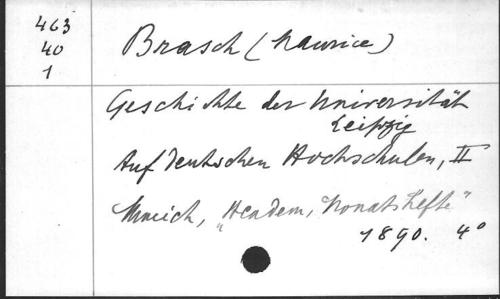 463
40
1
Brasch (Maurice)
Geschichte der Universität
Leipzig
Auf deutschen Hochschulen, II
Munich, „Akadem. Monatshefte"
1890. 4°